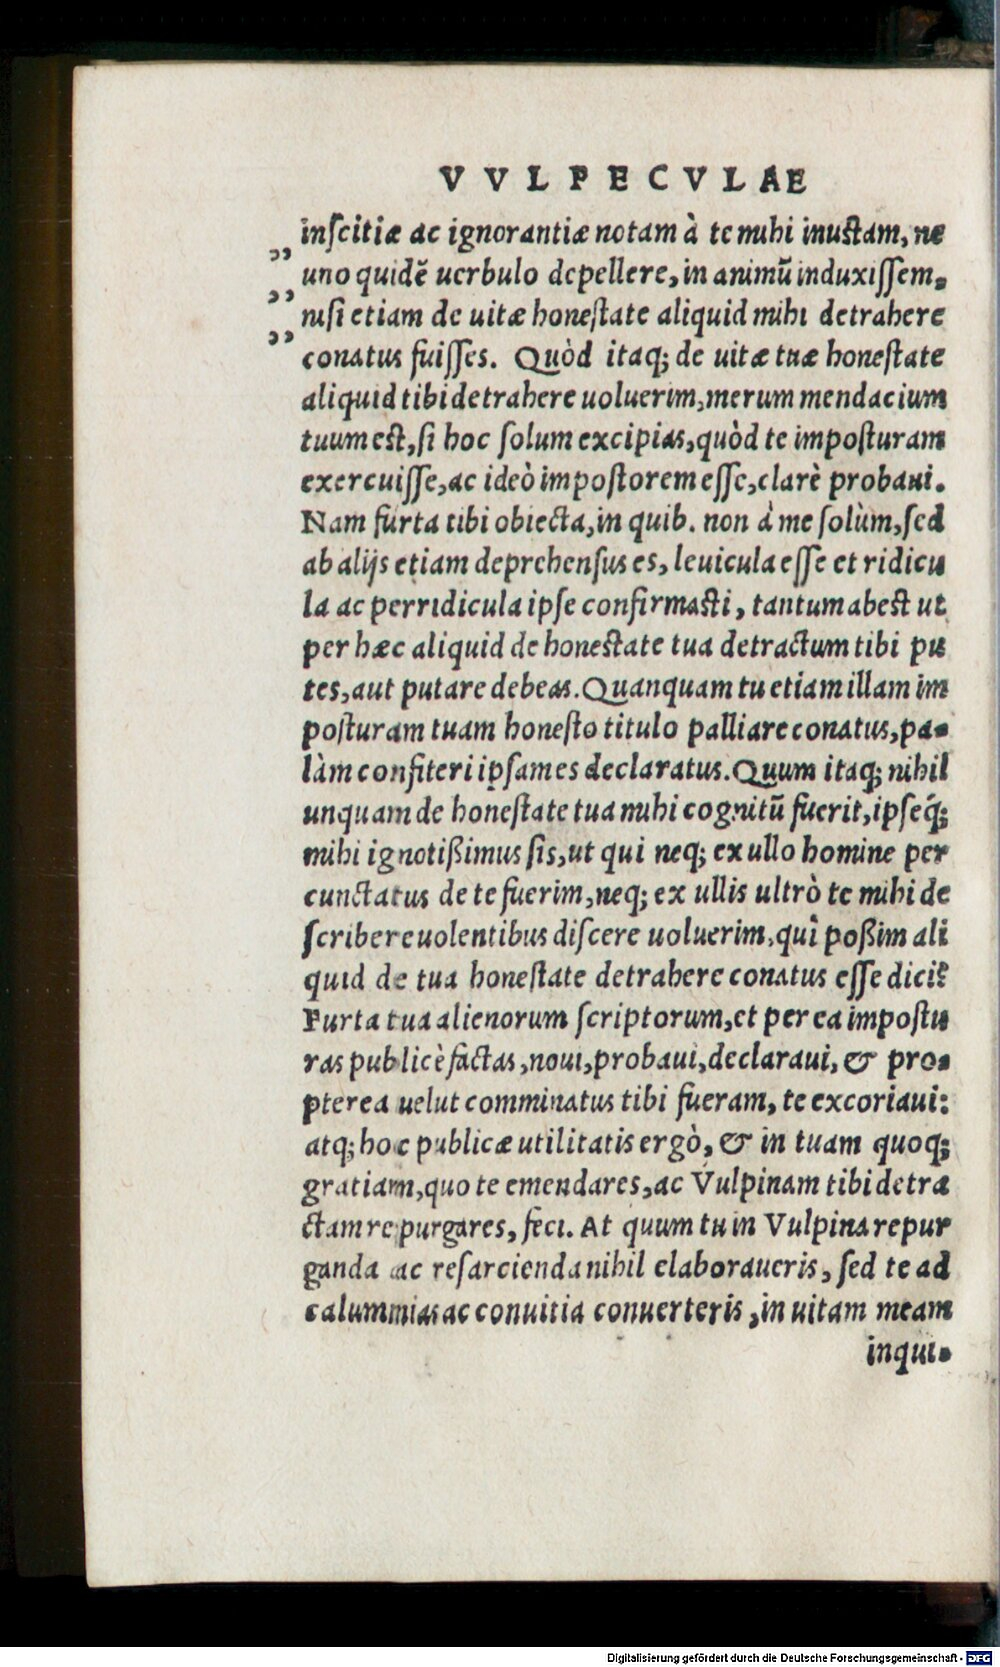 VVLPECVLAE
inſcitiæ ac ignorantiæ notam à te mihi inuſtam, ne
„ uno quidẽ uerbulo depellere, in animũ induxiſſem,
„ niſi etiam de uitæ honeſtate aliquid mihi detrahere
„ conatus fuiſſes. Quòd itaq; de uitæ tuæ honeſtate
aliquid tibi detrahere uoluerim, merum mendacium
tuum eſt, ſi hoc ſolum excipias, quòd te impoſturam
exercuiſſe, ac ideò impoſtorem eſſe, clarè probaui.
Nam furta tibi obiecta, in quib. non à me ſolùm, ſed
ab alijs etiam deprehenſus es, leuicula eſſe et ridicu
la ac perridicula ipſe confirmaſti, tantum abeſt ut
per hæc aliquid de honeſtate tua detractum tibi pu
tes, aut putare debeas. Quanquam tu etiam illam im
poſturam tuam honeſto titulo palliare conatus, pa-
làm confiteri ipſam es declaratus. Quum itaq; nihil
unquam de honeſtate tua mihi cognitũ fuerit, ipſeq́;
mihi ignotißimus ſis, ut qui neq; ex ullo homine per
cunctatus de te fuerim, neq; ex ullis ultrò te mihi de
ſcribere uolentibus diſcere uoluerim, quî poßim ali
quid de tua honeſtate detrahere conatus eſſe dici?
Furta tua alienorum ſcriptorum, et per ea impoſtu
ras publicè factas, noui, probaui, declaraui, & pro-
pterea uelut comminatus tibi fueram, te excoriaui:
atq; hoc publicæ utilitatis ergò, & in tuam quoq;
gratiam, quo te emendares, ac Vulpinam tibi detra
ctam repurgares, feci. At quum tu in Vulpina repur
ganda ac reſarcienda nihil elaboraueris, ſed te ad
calummias ac conuitia conuerteris, in uitam meam
inqui-
Digitalisierung gefördert durch die Deutsche Forschungsgemeinschaft - DFG